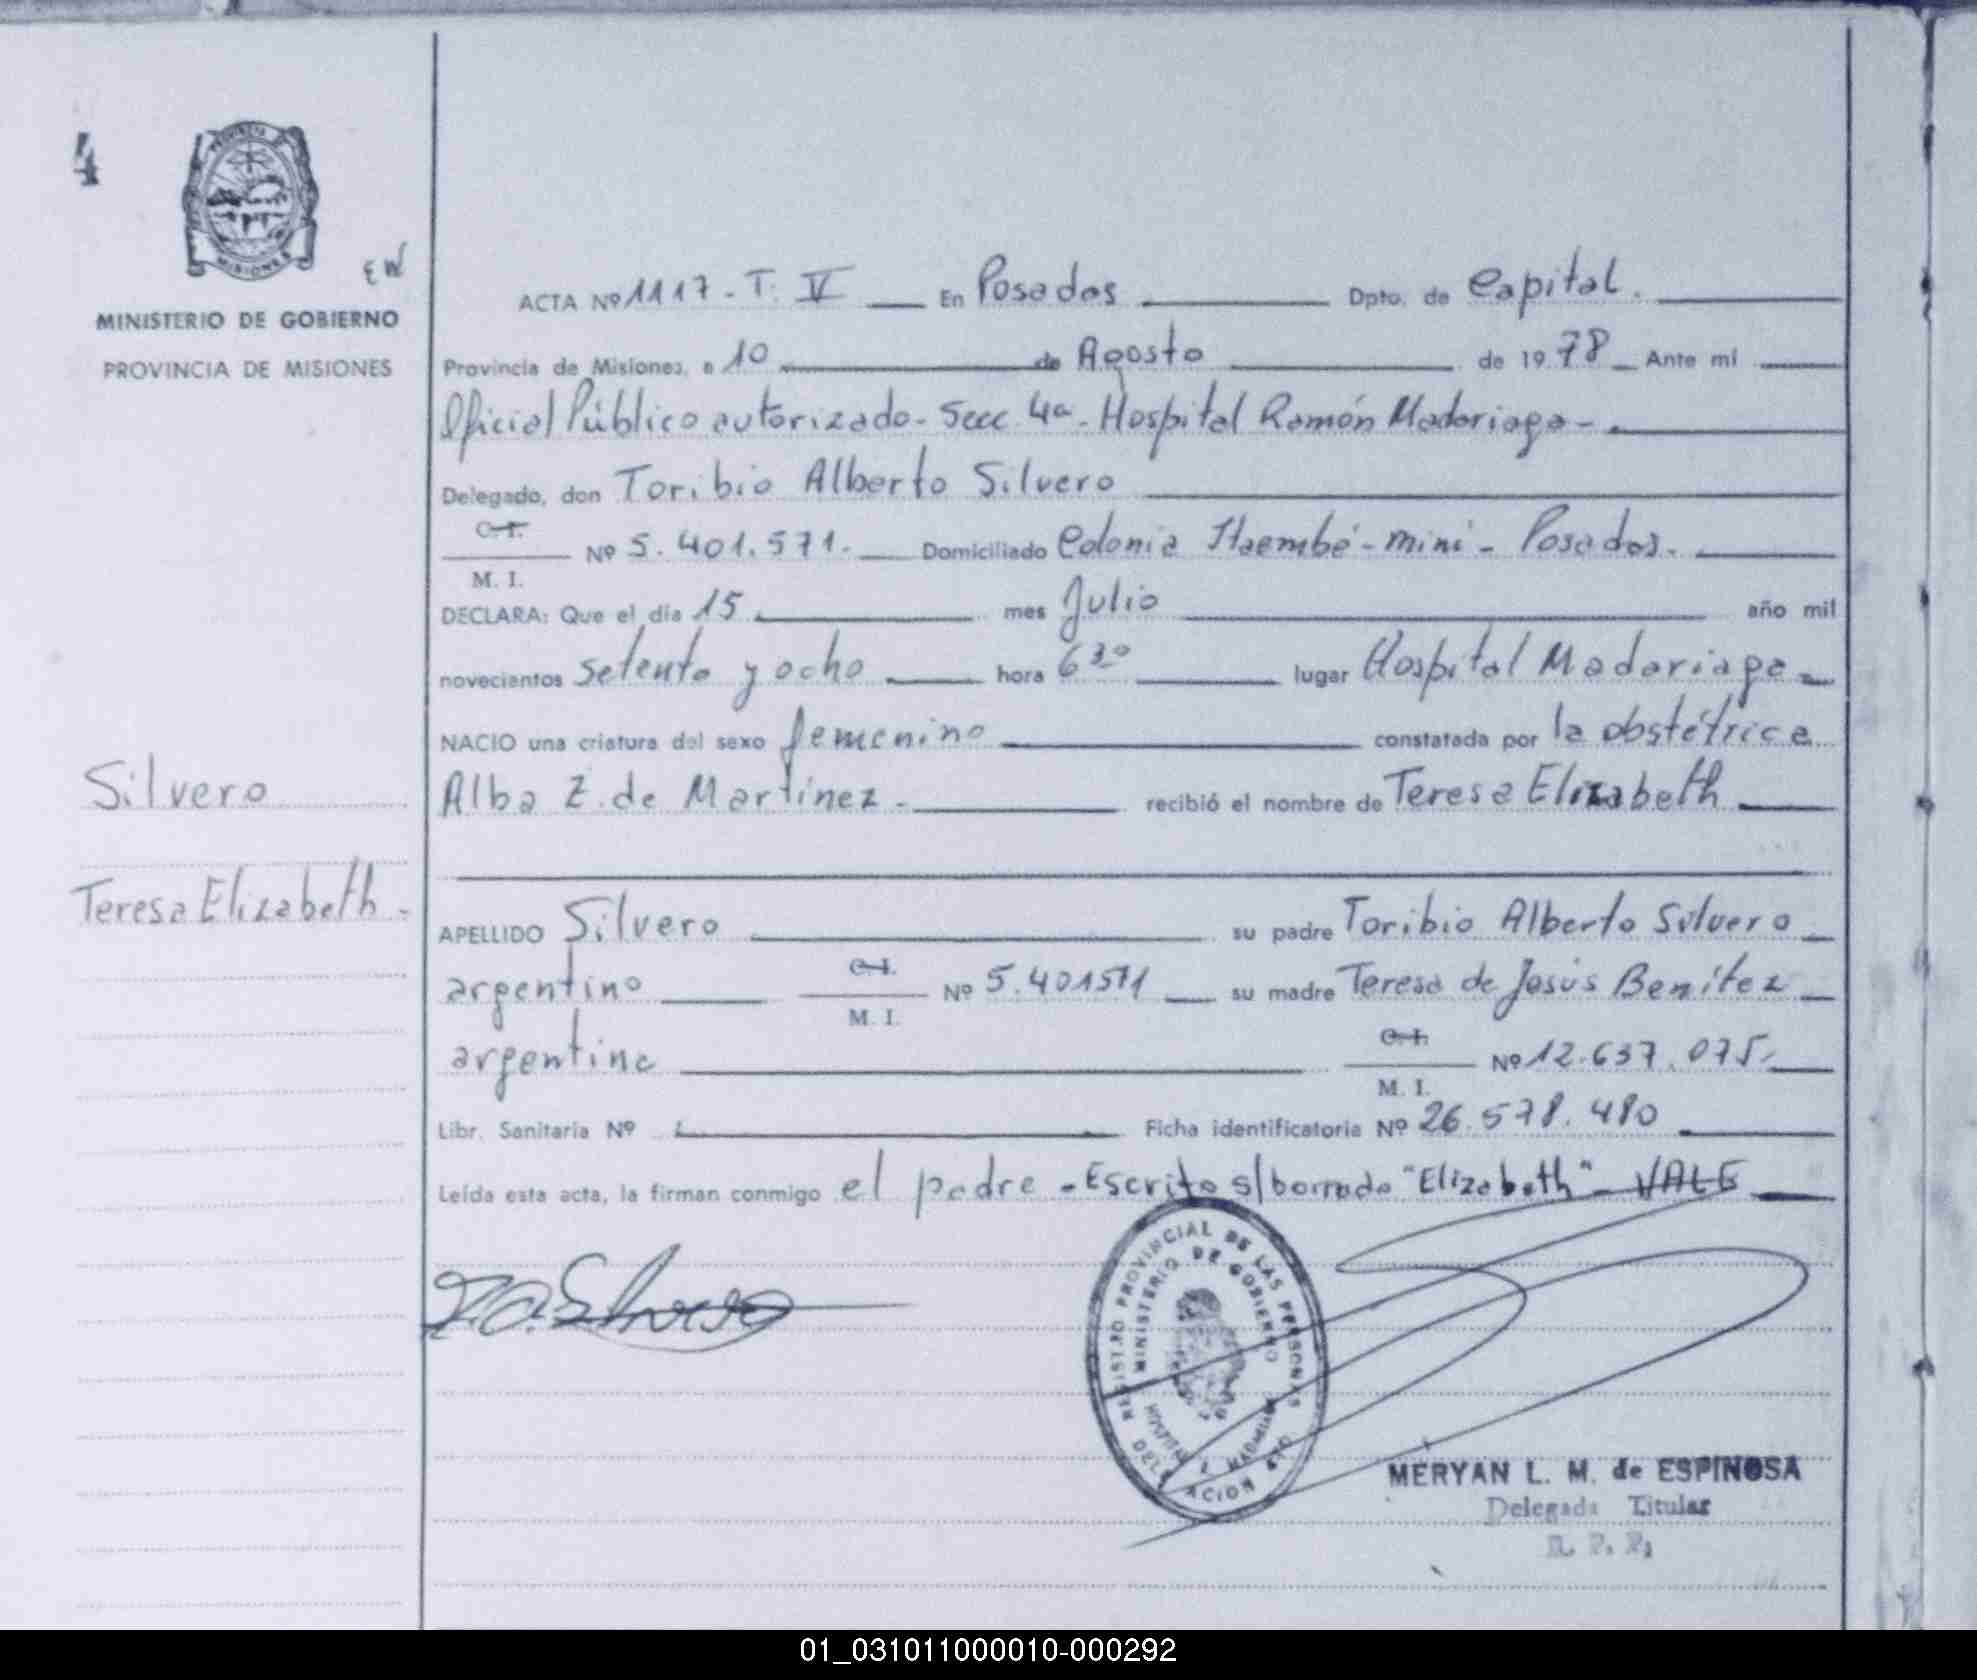 4
PROVINCIA DE
MISIONES
MINISTERIO DE GOBIERNO
PROVINCIA DE MISIONES
Silvero
Teresa Elizabeth -
ACTA Nº 1117 - T. V En Posadas Dpto. de Capital.
Provincia de Misiones, a 10 de Agosto de 1978 Ante mí
Oficial Público autorizado - Secc. 4a - Hospital Ramón Madariaga -
Delegado, don Toribio Alberto Silvero
C.I.
Nº 5.401.571. Domiciliado Colonia Itaembé - miní - Posadas.
M. I.
DECLARA: Que el día 15 mes Julio año mil
novecientos setenta y ocho hora 6 30 lugar Hospital Madariaga
NACIO una criatura del sexo femenino constatada por la obstétrica
Alba Z. de Martínez - recibió el nombre de Teresa Elizabeth
APELLIDO Silvero su padre Toribio Alberto Silvero
argentino C.I. Nº 5.401571 su madre Teresa de Jesús Benítez
M. I.
argentina C.I. Nº 12.637.075.
M. I.
Libr. Sanitaria Nº Ficha identificatoria Nº 26.578.480
Leída esta acta, la firman conmigo el padre - Escrito s/borrado "Elizabeth" - VALE
T.A. Silvero
REGISTRO PROVINCIAL DE LAS PERSONAS
MINISTERIO DE GOBIERNO
MERYAN L. M. de ESPINOSA
Delegada Titular
01_031011000010-000292